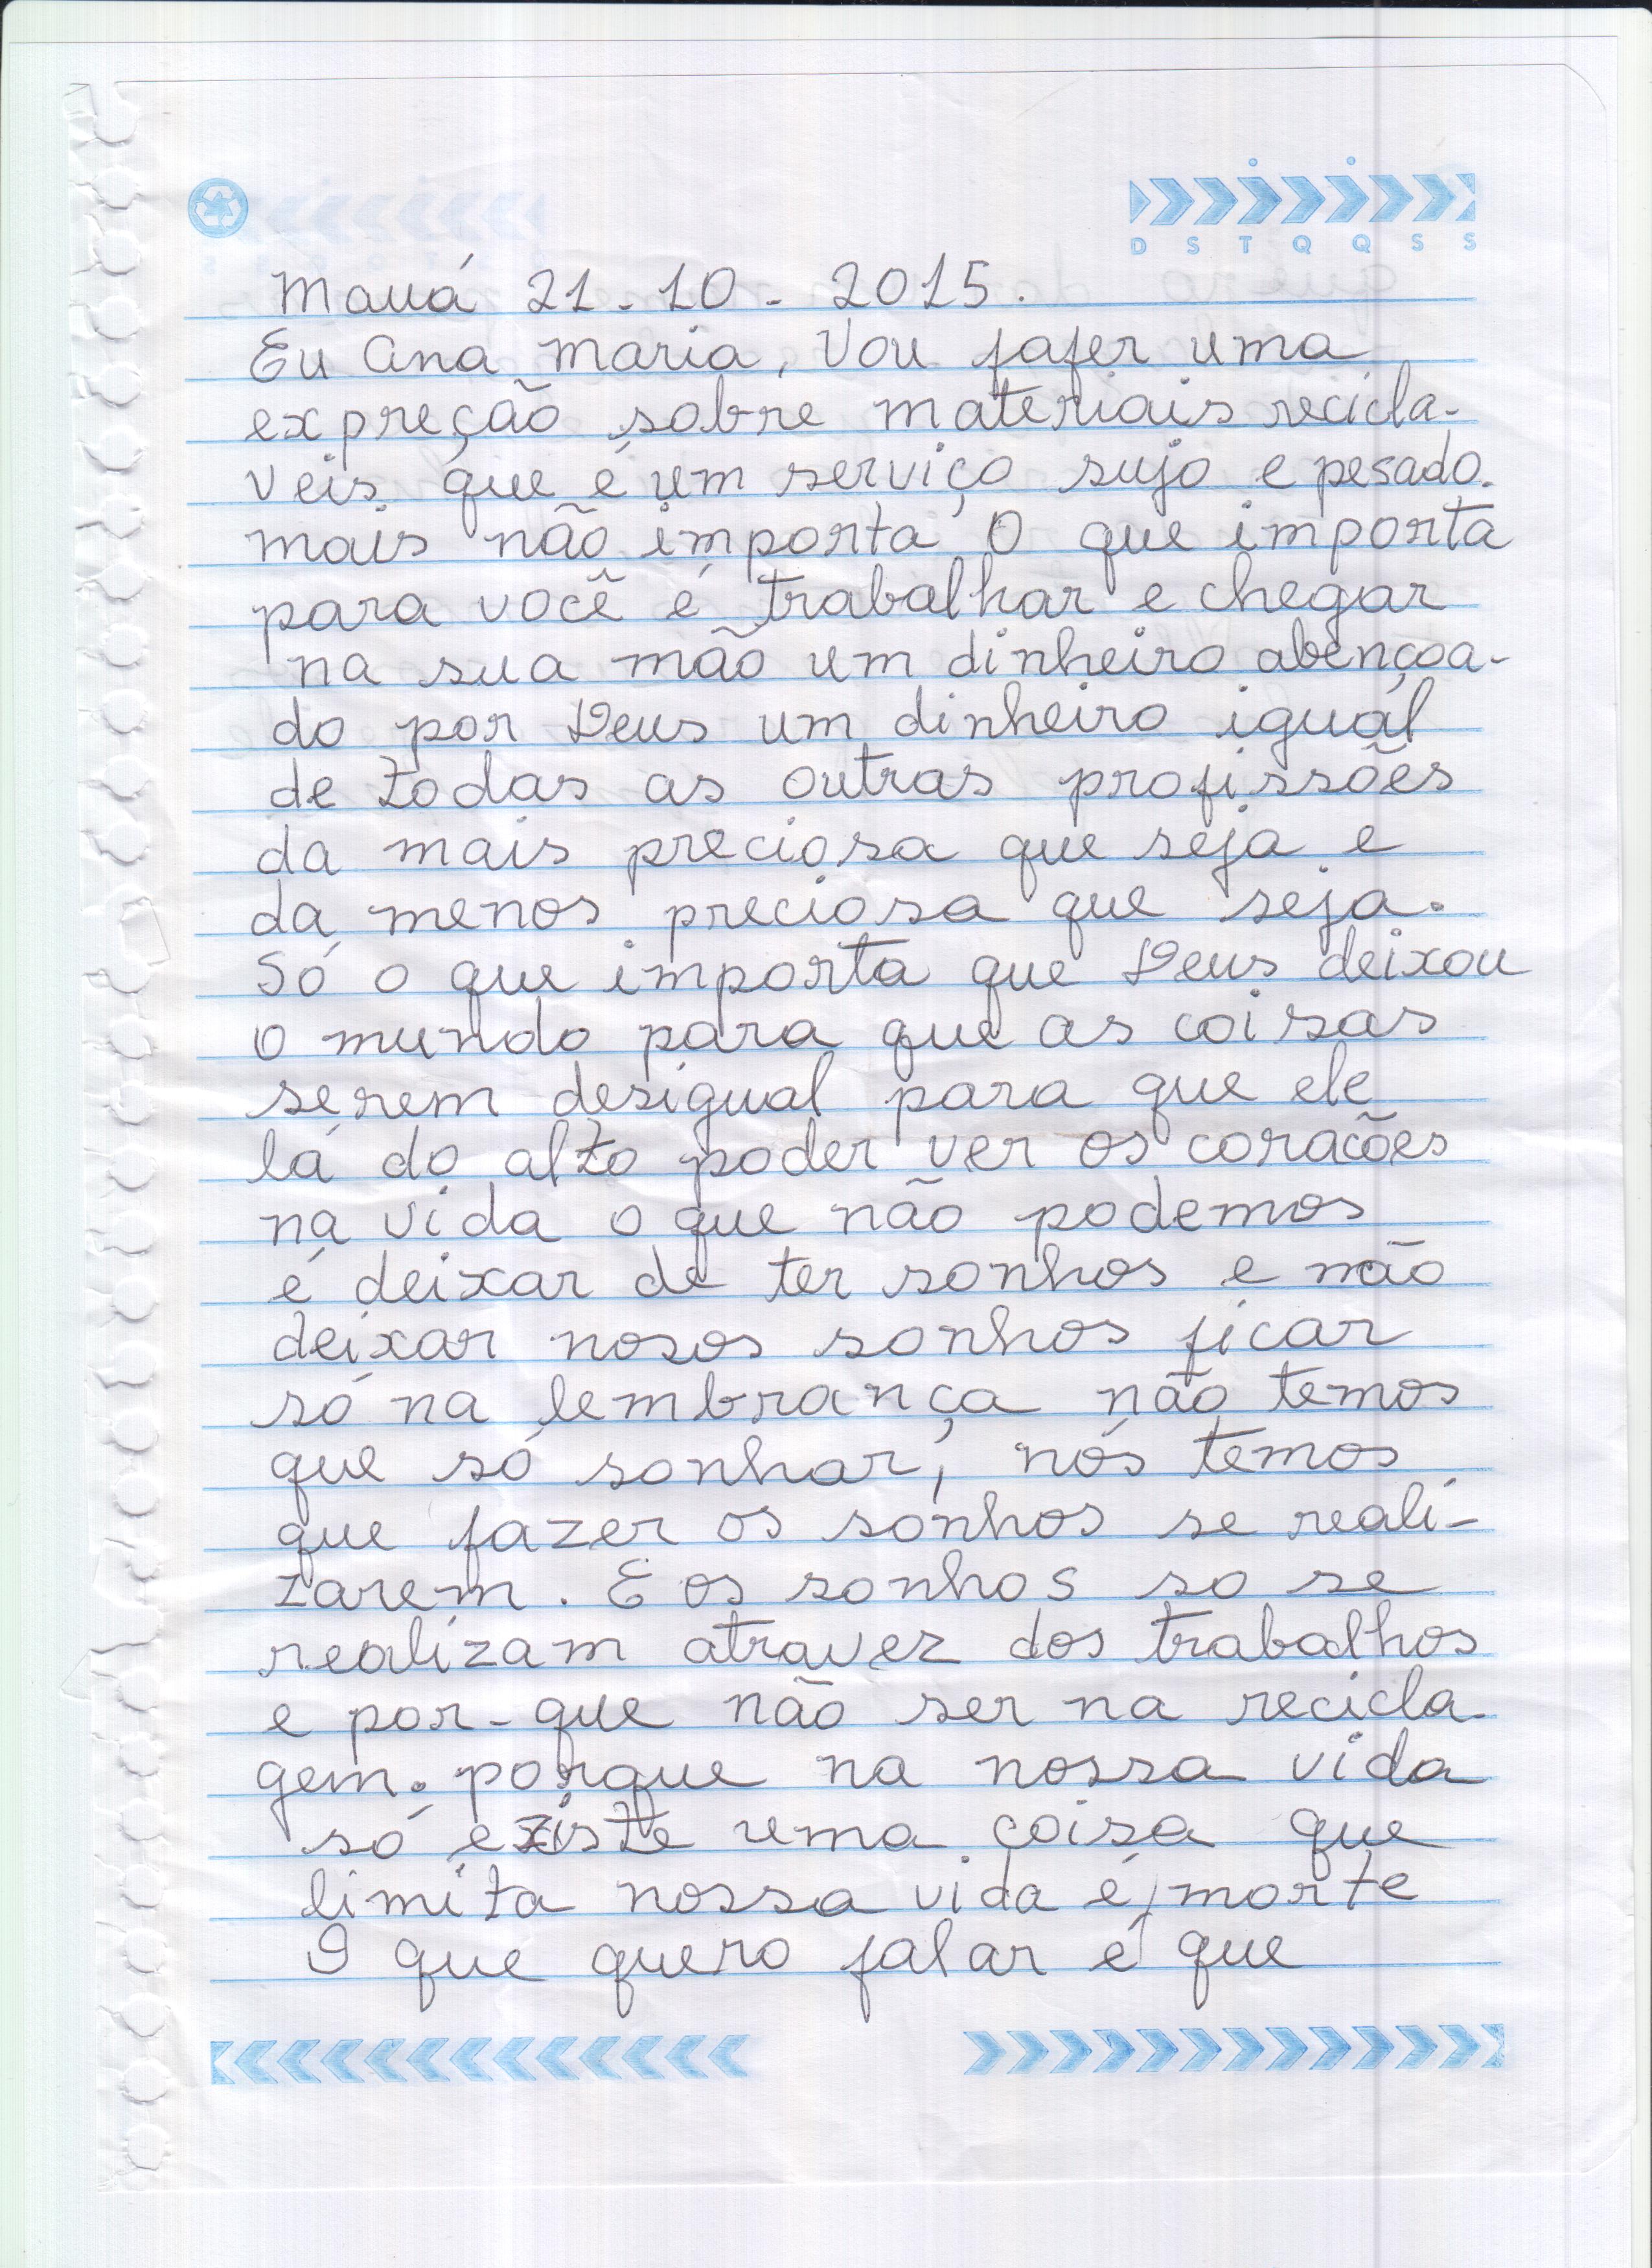 D S T Q Q S S
Mauá 21-10-2015.
Eu Ana Maria, Vou fafer uma
expreção sobre materiais recicla-
veis que é um serviço sujo e pesado.
mais não importa O que importa
para você é trabalhar e chegar
na sua mão um dinheiro abençoa-
do por Deus um dinheiro iguál
de todas as outras profissões
da mais preciosa que seja e
da menos preciosa que seja.
Só o que importa que Deus deixou
o mundo para que as coisas
serem desigual para que ele
lá do alto poder ver os coracões
na vida o que não podemos
é deixar de ter sonhos e não
deixar nosos sonhos ficar
só na lembrança não temos
que só sonhar, nós temos
que fazer os sonhos se reali-
zarem. E os sonhos so se
realizam atravez dos trabalhos
e por-que não ser na recicla-
gem. porque na nossa vida
só eziste uma coisa que
limita nossa vida é, morte
O que quero falar é que